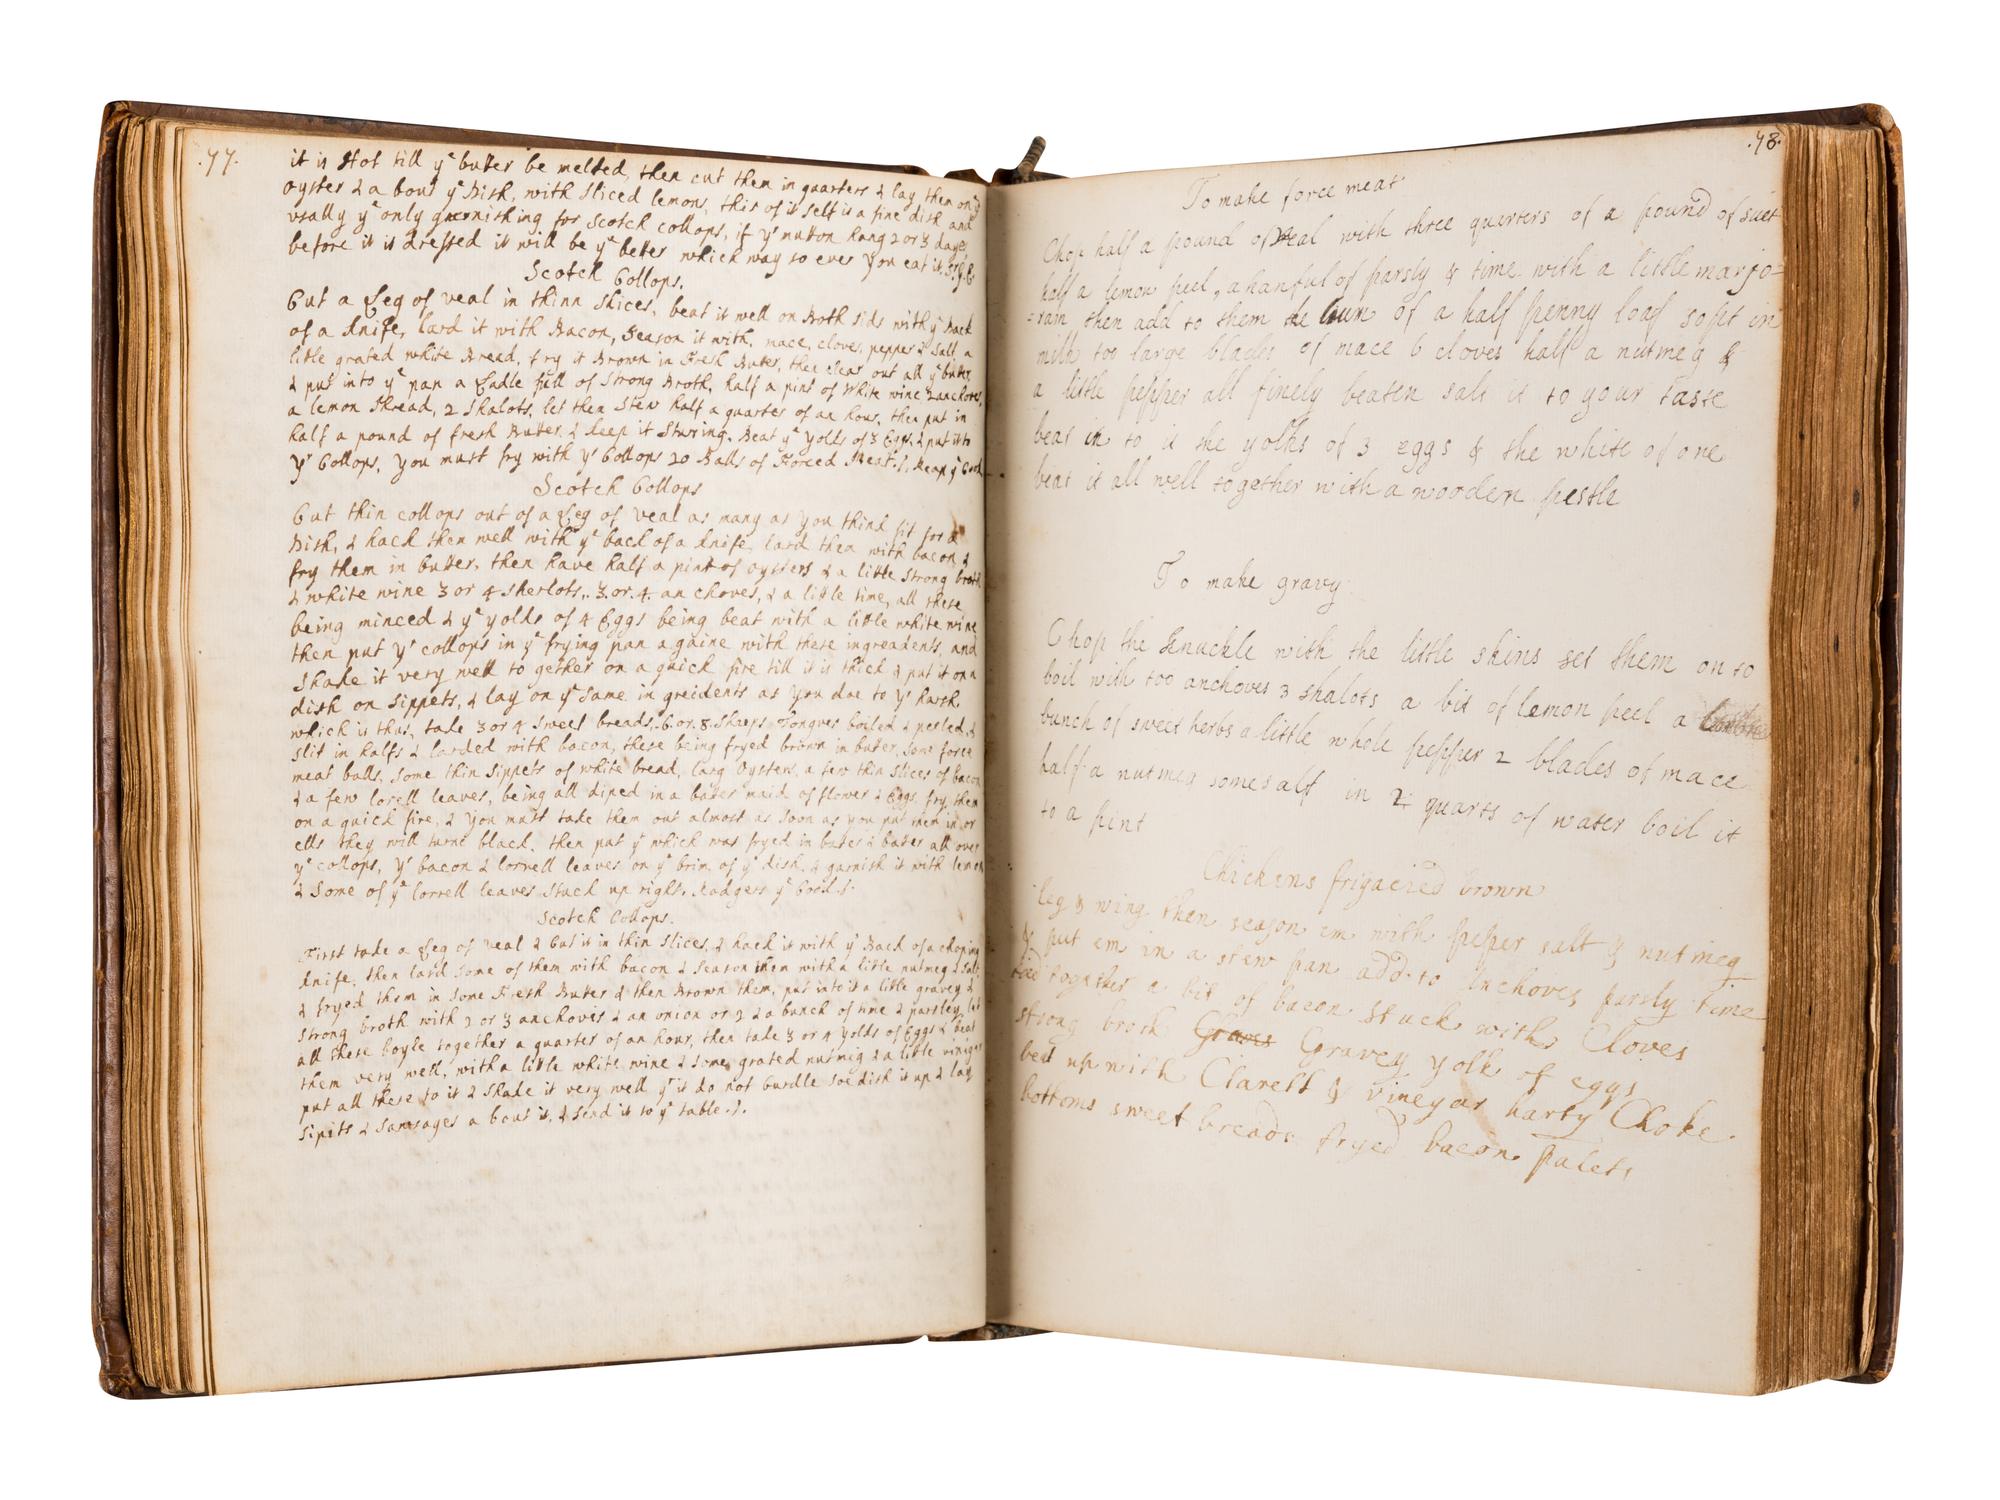 .77.
it is Hot till yᵉ butter be melted, then cut them in quarters & lay them on yᵉ
Oyster & a bout yᵉ Dish, with sliced lemons, this of it self is a fine dish and
vsually yᵉ only garnishing for Scotch collops, if yʳ mutton hang 2 or 3 dayes
before it is dressed it will be yᵉ better which way so ever you eat it.
Scotch Collops.
Cut a Leg of veal in thinn Slices, beat it well on Both sids with yᵉ Back
of a knife, lard it with Bacon, Season it with, mace, cloves, pepper & Salt, a
litle grated white Bread, fry it Brown in Fresh Buter, then clear out all yᵉ buter
& put into yᵉ pan a Ladle full of Strong Broth, half a pint of White wine 2 anchoves,
a lemon Shread, 2 Shalots, let them Stew half a quarter of an hour, then put in
half a pound of fresh Butter & keep it Sturing. Beat yᵉ yolks of 3 Eggs, & put it to
yʳ Collops, you must fry with yʳ Collops 20 Balls of Forced Meat.
Scotch Collops
Cut thin collops out of a Leg of veal as many as you think fit for a
Dish, & hack them well with yᵉ back of a knife, lard them with bacon &
fry them in butter, then have half a pint of oysters & a little Strong broth
& white wine 3 or 4 sherlots, .3.or.4. anchoves, & a little time, all these
being minced & yᵉ yolks of 4 Eggs being beat with a little white wine
then put yʳ collops in yᵉ frying pan againe with these ingreadents, and
Shake it very well to gether on a quick fire till it is thick & put it on a
dish on Sippets, & lay on yᵉ Same in greidents as you doe to yʳ harsh.
which is thus, take 3 or 4 Sweet breads, .6.or.8. Sheeps Tongues boiled & peeled, &
slit in halfs & larded with bacon, these being fryed brown in buter, Some force
meat balls, Some thin Sippets of white bread, larg Oysters, a few thin slices of bacon
& a few Sorell leaves, being all diped in a bater maid of flower & Eggs, fry them
on a quick fire, & you must take them out almost as Soon as you put them in or
ells they will turne black. then put yᵗ which was fryed in bater & buter all over
yᵉ collops, yʳ bacon & sorrell leaves on yᵉ brim of yᵉ dish, & garnish it with lemon
& Some of yᵉ Sorrell leaves Stuck up right. Rodgers yᵉ Cook.
Scotch Collops.
First take a Leg of veal & Cut it in thin Slices, & hack it with yᵉ Back of a choping
knife, then lard Some of them with bacon & Season them with a little nutmeg & Salt
& fryed them in Some Fresh Buter & then Brown them, put into it a litle gravey &
Strong broth with 2 or 3 anchoves & an onion or 2 & a bunch of time & parsley, let
all these boyle together a quarter of an hour, then take 3 or 4 yolks of Eggs & beat
them very well, with a little white wine & Some grated nutmig & a litle viniger
put all these to it & Shake it very well yᵗ it do not Curdle Soe dish it up & lay
Sipits & Sausages a bout it, & Send it to yᵉ table.
.78.
To make force meat
Chop half a pound of Veal with three quarters of a pound of suet
half a lemon peel, a hanful of parsly & time with a little marjo=
=ram then add to them the crum of a half penny loaf sopt in
milk too large blades of mace 6 cloves half a nutmeg &
a little pepper all finely beaten salt it to your taste
beat in to it the yolks of 3 eggs & the white of one
beat it all well together with a wooden pestle
To make gravy
Chop the Knuckle with the little skins set them on to
boil with too anchoves 3 shalots a bit of lemon peel a
bunch of sweet herbs a little whole pepper 2 blades of mace
half a nutmeg some salt in 2 quarts of water boil it
to a pint
Chickens frigacied brown
leg & wing then season em with pepper salt & nutmeg
& put em in a stew pan add to Anchoves parsly time
tied together a bit of bacon stuck with Cloves
strong broth Gravey yolk of eggs
beat up with Clarett & vinegar harty Choke
bottoms sweet breads fryed bacon palets